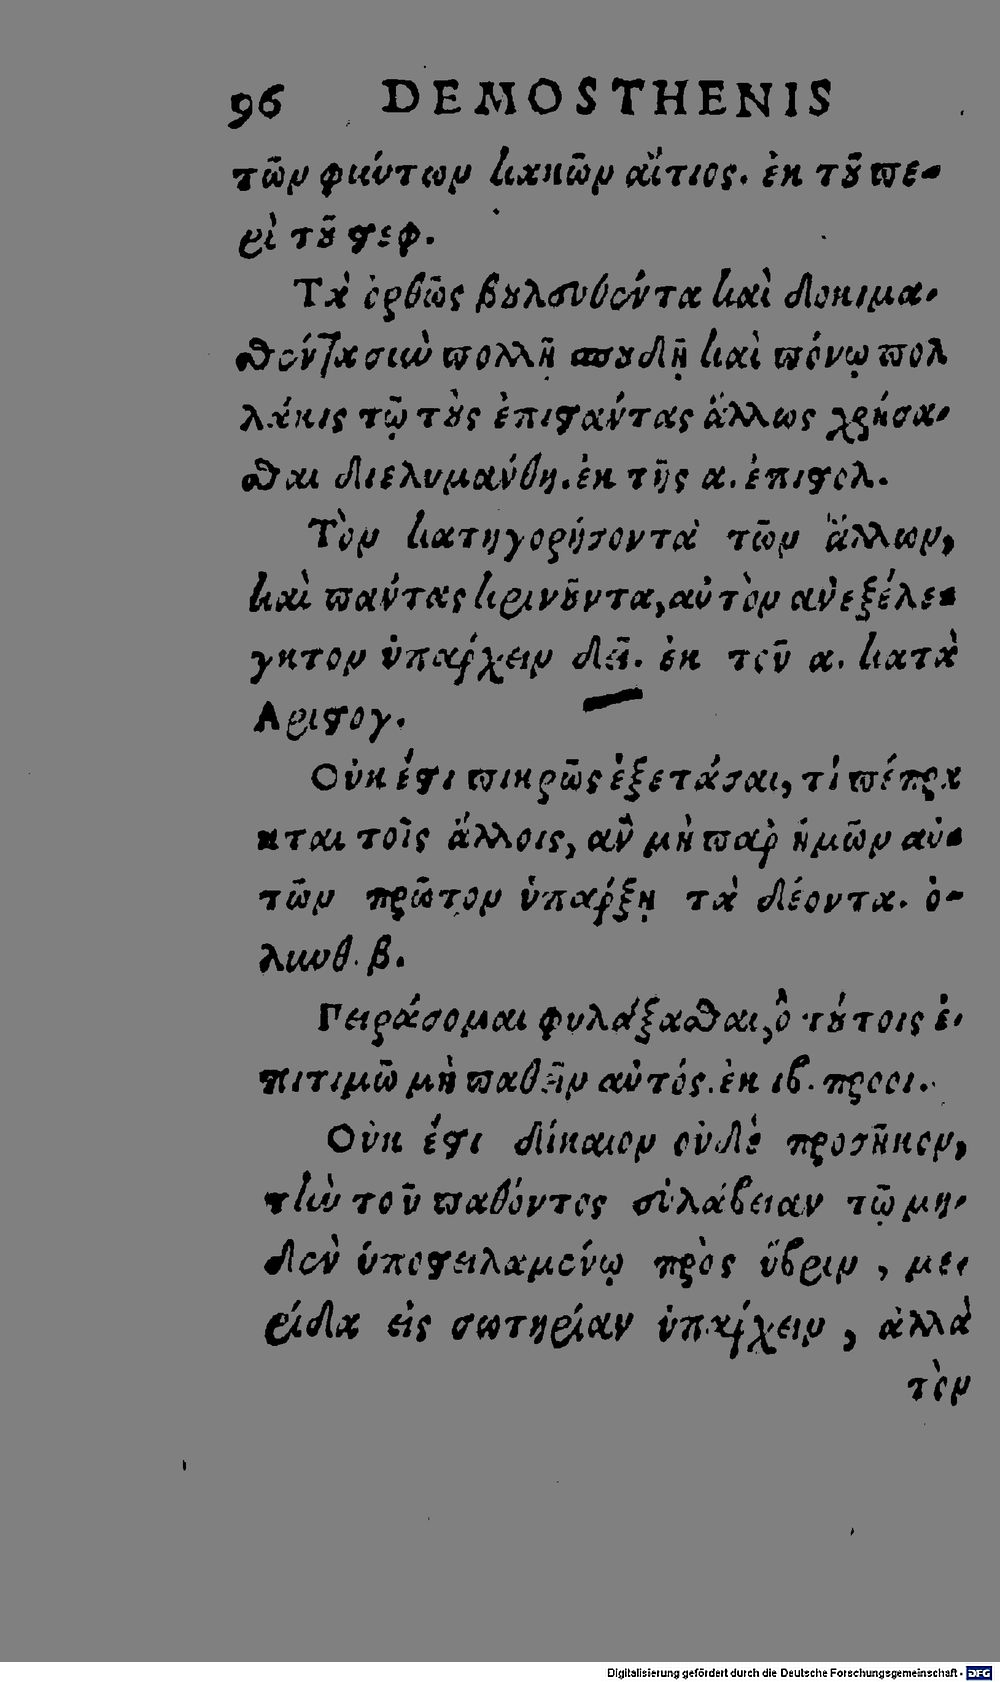 96 DEMOSTHENIS
τῶν φύντων κακῶν αἴτιος. ἐκ τοῦ πε-
ρὶ τοῦ στεφ.
Τὰ ὀρθῶς βουλευθέντα καὶ δοκιμα-
σθέντα σὺν πολλῇ σπουδῇ καὶ πόνῳ πολ
λάκις τῷ τοὺς ἐπιστάντας ἄλλως χρήσα-
σθαι διελυμάνθη. ἐκ τῆς α. ἐπιστολ.
Τὸν κατηγορήσοντα τῶν ἄλλων,
καὶ πάντας κρινοῦντα, αὐτὸν ἀνεξέλε-
γκτον ὑπάρχειν δεῖ. ἐκ τοῦ α. κατὰ
Αριστογ.
Οὐκ ἔστι πικρῶς ἐξετάσαι, τί πέπρα
κται τοῖς ἄλλοις, ἂν μὴ παρ ἡμῶν αὐ-
τῶν πρῶτον ὑπάρξῃ τὰ δέοντα. ὀ-
λυνθ. β.
Πειράσομαι φυλάξασθαι, ὃ τούτοις ἐ-
πιτιμῶ μὴ παθεῖν αὐτός. ἐκ ιβ. προοι.
Οὐκ ἔστι δίκαιον οὐδὲ προσῆκον,
τὴν τοῦ παθόντος εὐλάβειαν τῷ μη-
δὲν ὑποστειλαμένῳ πρὸς ὕβριν, με-
ρίδα εἰς σωτηρίαν ὑπάρχειν, ἀλλὰ
τὸν
Digitalisierung gefördert durch die Deutsche Forschungsgemeinschaft - DFG